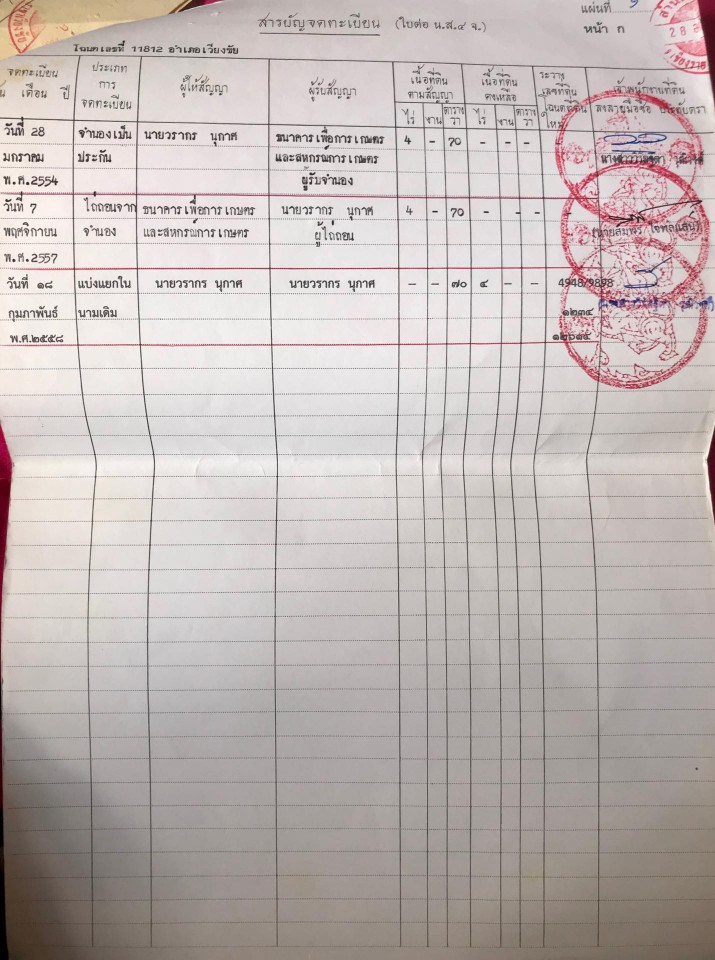 แผ่นที่
สารบัญจดทะเบียน (ใบต่อ น.ส.๔ จ.)
หน้า ก
28
โฉนดเลขที่ 11812 อำเภอเวียงชัย
จดทะเบียน ประเภท ผู้ให้สัญญา ผู้รับสัญญา เนื้อที่ดิน เนื้อที่ดิน ระวาง เจ้าพนักงานที่ดิน
เดือน ปี การ ตามสัญญา คงเหลือ เลขที่ดิน ลงลายมือชื่อ ประทับตรา
จดทะเบียน ไร่ งาน ตารางวา ไร่ งาน ตารางวา โฉนดที่ดิน ใหม่
วันที่ 28 จำนองเป็น นายวรากร นุกาศ ธนาคารเพื่อการเกษตร 4 - 70 - - -
มกราคม ประกัน และสหกรณ์การเกษตร
พ.ศ.2554 ผู้รับจำนอง
วันที่ 7 ไถ่ถอนจาก ธนาคารเพื่อการเกษตร นายวรากร นุกาศ 4 - 70 - - - -
พฤศจิกายน จำนอง และสหกรณ์การเกษตร ผู้ไถ่ถอน
พ.ศ.2557
วันที่ ๑๘ แบ่งแยกใน นายวรากร นุกาศ นายวรากร นุกาศ - - ๗๐ ๔ - - 4948/9898
กุมภาพันธ์ นามเดิม ๑๒๓๔
พ.ศ.๒๕๕๘